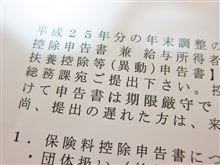 平成25年分の年末調整の
控除申告書 兼 給与所得者
扶養控除等(異動)申告書】
総務課宛ご提出下さい。控
けて申告書は期限厳守で
尚、提出の遅れた方は、来
1. 保険料控除申告書に
団体扱い